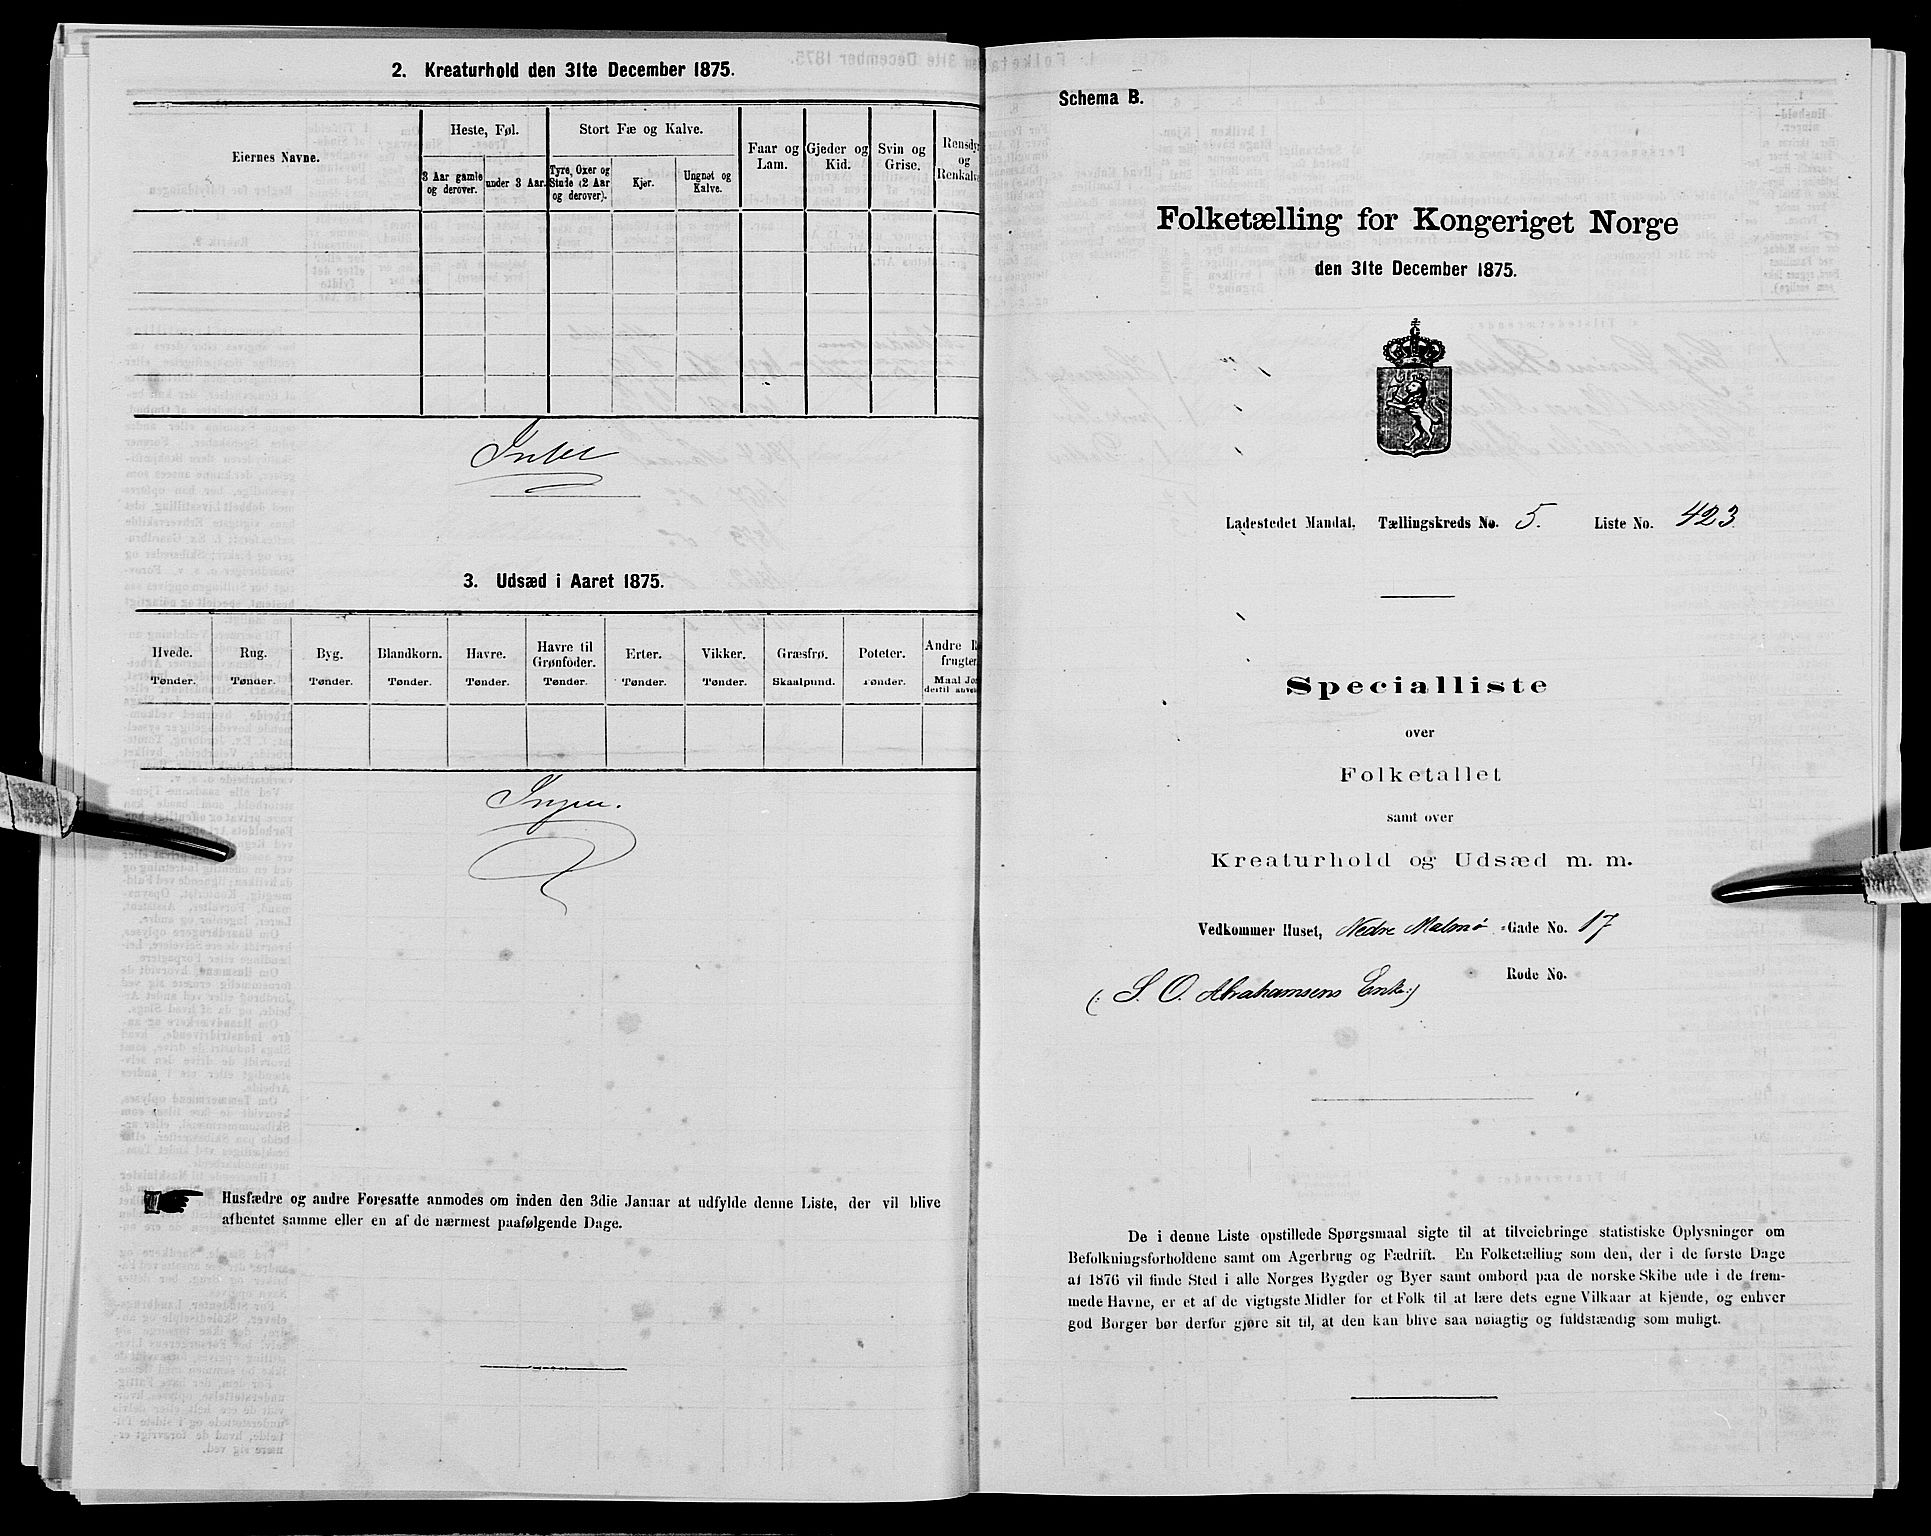 2. Kreaturhold den 31te December 1875.
Eiernes Navne.
Heste, Føl.
Stort Fæ og Kalve.
Faar og Lam.
Gjeder og Kid.
Svin og Grise.
Rensdyr og Renkalve
3 Aar gamle og derover.
under 3 Aar.
Tyre, Oxer og Stude (2 Aar og derover).
Kjør.
Ungnøt og Kalve.
Intet
3. Udsæd i Aaret 1875.
Hvede. Rug. Byg. Blandkorn. Havre. Havre til Grønfoder. Erter. Vikker. Græsfrø. Poteter. Andre
Tønder. Tønder. Tønder. Tønder. Tønder. Tønder. Tønder. Tønder. Skaalpund. Tønder. Maal
Ingen.
Husfædre og andre Foresatte anmodes om inden den 3die Januar at udfylde denne Liste, der vil blive
afhentet samme eller en af de nærmest paafølgende Dage.
Schema B.
Folketælling for Kongeriget Norge
den 31te December 1875.
Ladestedet Mandal, Tællingskreds No. 5. Liste No. 423
Specialliste
over
Folketallet
samt over
Kreaturhold og Udsæd m. m.
Vedkommer Huset, Nedre Malmø -Gade No. 17
Rode No.
(: S. O. Abrahamsens Enke:)
De i denne Liste opstillede Spørgsmaal sigte til at tilveiebringe statistiske Oplysninger om
Befolkningsforholdene samt om Agerbrug og Fædrift. En Folketælling som den, der i de første Dage
af 1876 vil finde Sted i alle Norges Bygder og Byer samt ombord paa de norske Skibe ude i de frem-
mede Havne, er et af de vigtigste Midler for et Folk til at lære dets egne Vilkaar at kjende, og enhver
god Borger bør derfor gjøre sit til, at den kan blive saa nøiagtig og fuldstændig som muligt.